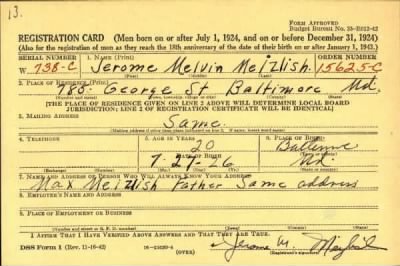 13.
FORM APPROVED
Budget Bureau No. 33-R012-42
REGISTRATION CARD (Men born on or after July 1, 1924, and on or before December 31, 1924)
(Also for the registration of men as they reach the 18th anniversary of the date of their birth on or after January 1, 1943.)
SERIAL NUMBER 1. NAME (Print) ORDER NUMBER
W 738-C Jerome Melvin Meizlish 15625-C
2. PLACE OF RESIDENCE (Print)
George St Baltimore Md.
[THE PLACE OF RESIDENCE GIVEN ON LINE 2 ABOVE WILL DETERMINE LOCAL BOARD
JURISDICTION; LINE 2 OF REGISTRATION CERTIFICATE WILL BE IDENTICAL]
3. MAILING ADDRESS
Same.
[Mailing address if other than place indicated on line 2. If same, insert word same]
4. TELEPHONE 5. AGE IN YEARS 6. PLACE OF BIRTH
20 Baltimore
7. 27-26 Md.
7. NAME AND ADDRESS OF PERSON WHO WILL ALWAYS KNOW YOUR ADDRESS
Max Meizlish Father Same address
8. EMPLOYER'S NAME AND ADDRESS
9. PLACE OF EMPLOYMENT OR BUSINESS
(Number and street or R. F. D. number) (Town) (County) (State)
I AFFIRM THAT I HAVE VERIFIED ABOVE ANSWERS AND THAT THEY ARE TRUE.
DSS Form 1 (Rev. 11-16-42) (OVER) Jerome M. Meizlish